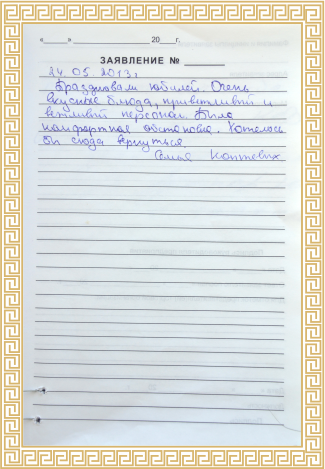 «____» ____________ 20___г.
ЗАЯВЛЕНИЕ № ______
24.05 2013г
Праздновали юбилей. Очень
вкусные блюда, приветливый и
вежливый персонал. Была
комфортная обстановка. Хотелось
бы сюда вернуться.
Семья